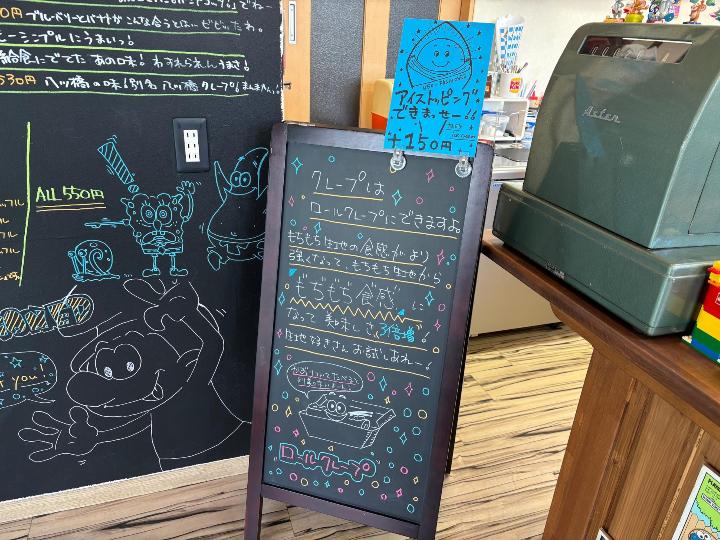 ブルーベリーとバナナがこんな合うとは、ビビッたわ。
シンプルにうまいっ!
給食にでてた あの味! わすれられんうまさ!
530円 八ツ橋の味!別名 八ッ橋クレープ!
ALL 550円
you!
アイストッピング
できまっせー!!
+150円
クレープは
ロールクレープにできますよ。
もちもち生地の食感がより
強くなって、もちもち生地から
もぢもぢ食感 に
なって 美味しさ 3倍増!
生地好きさん お試しあれー!
ロールクレープ
Aster